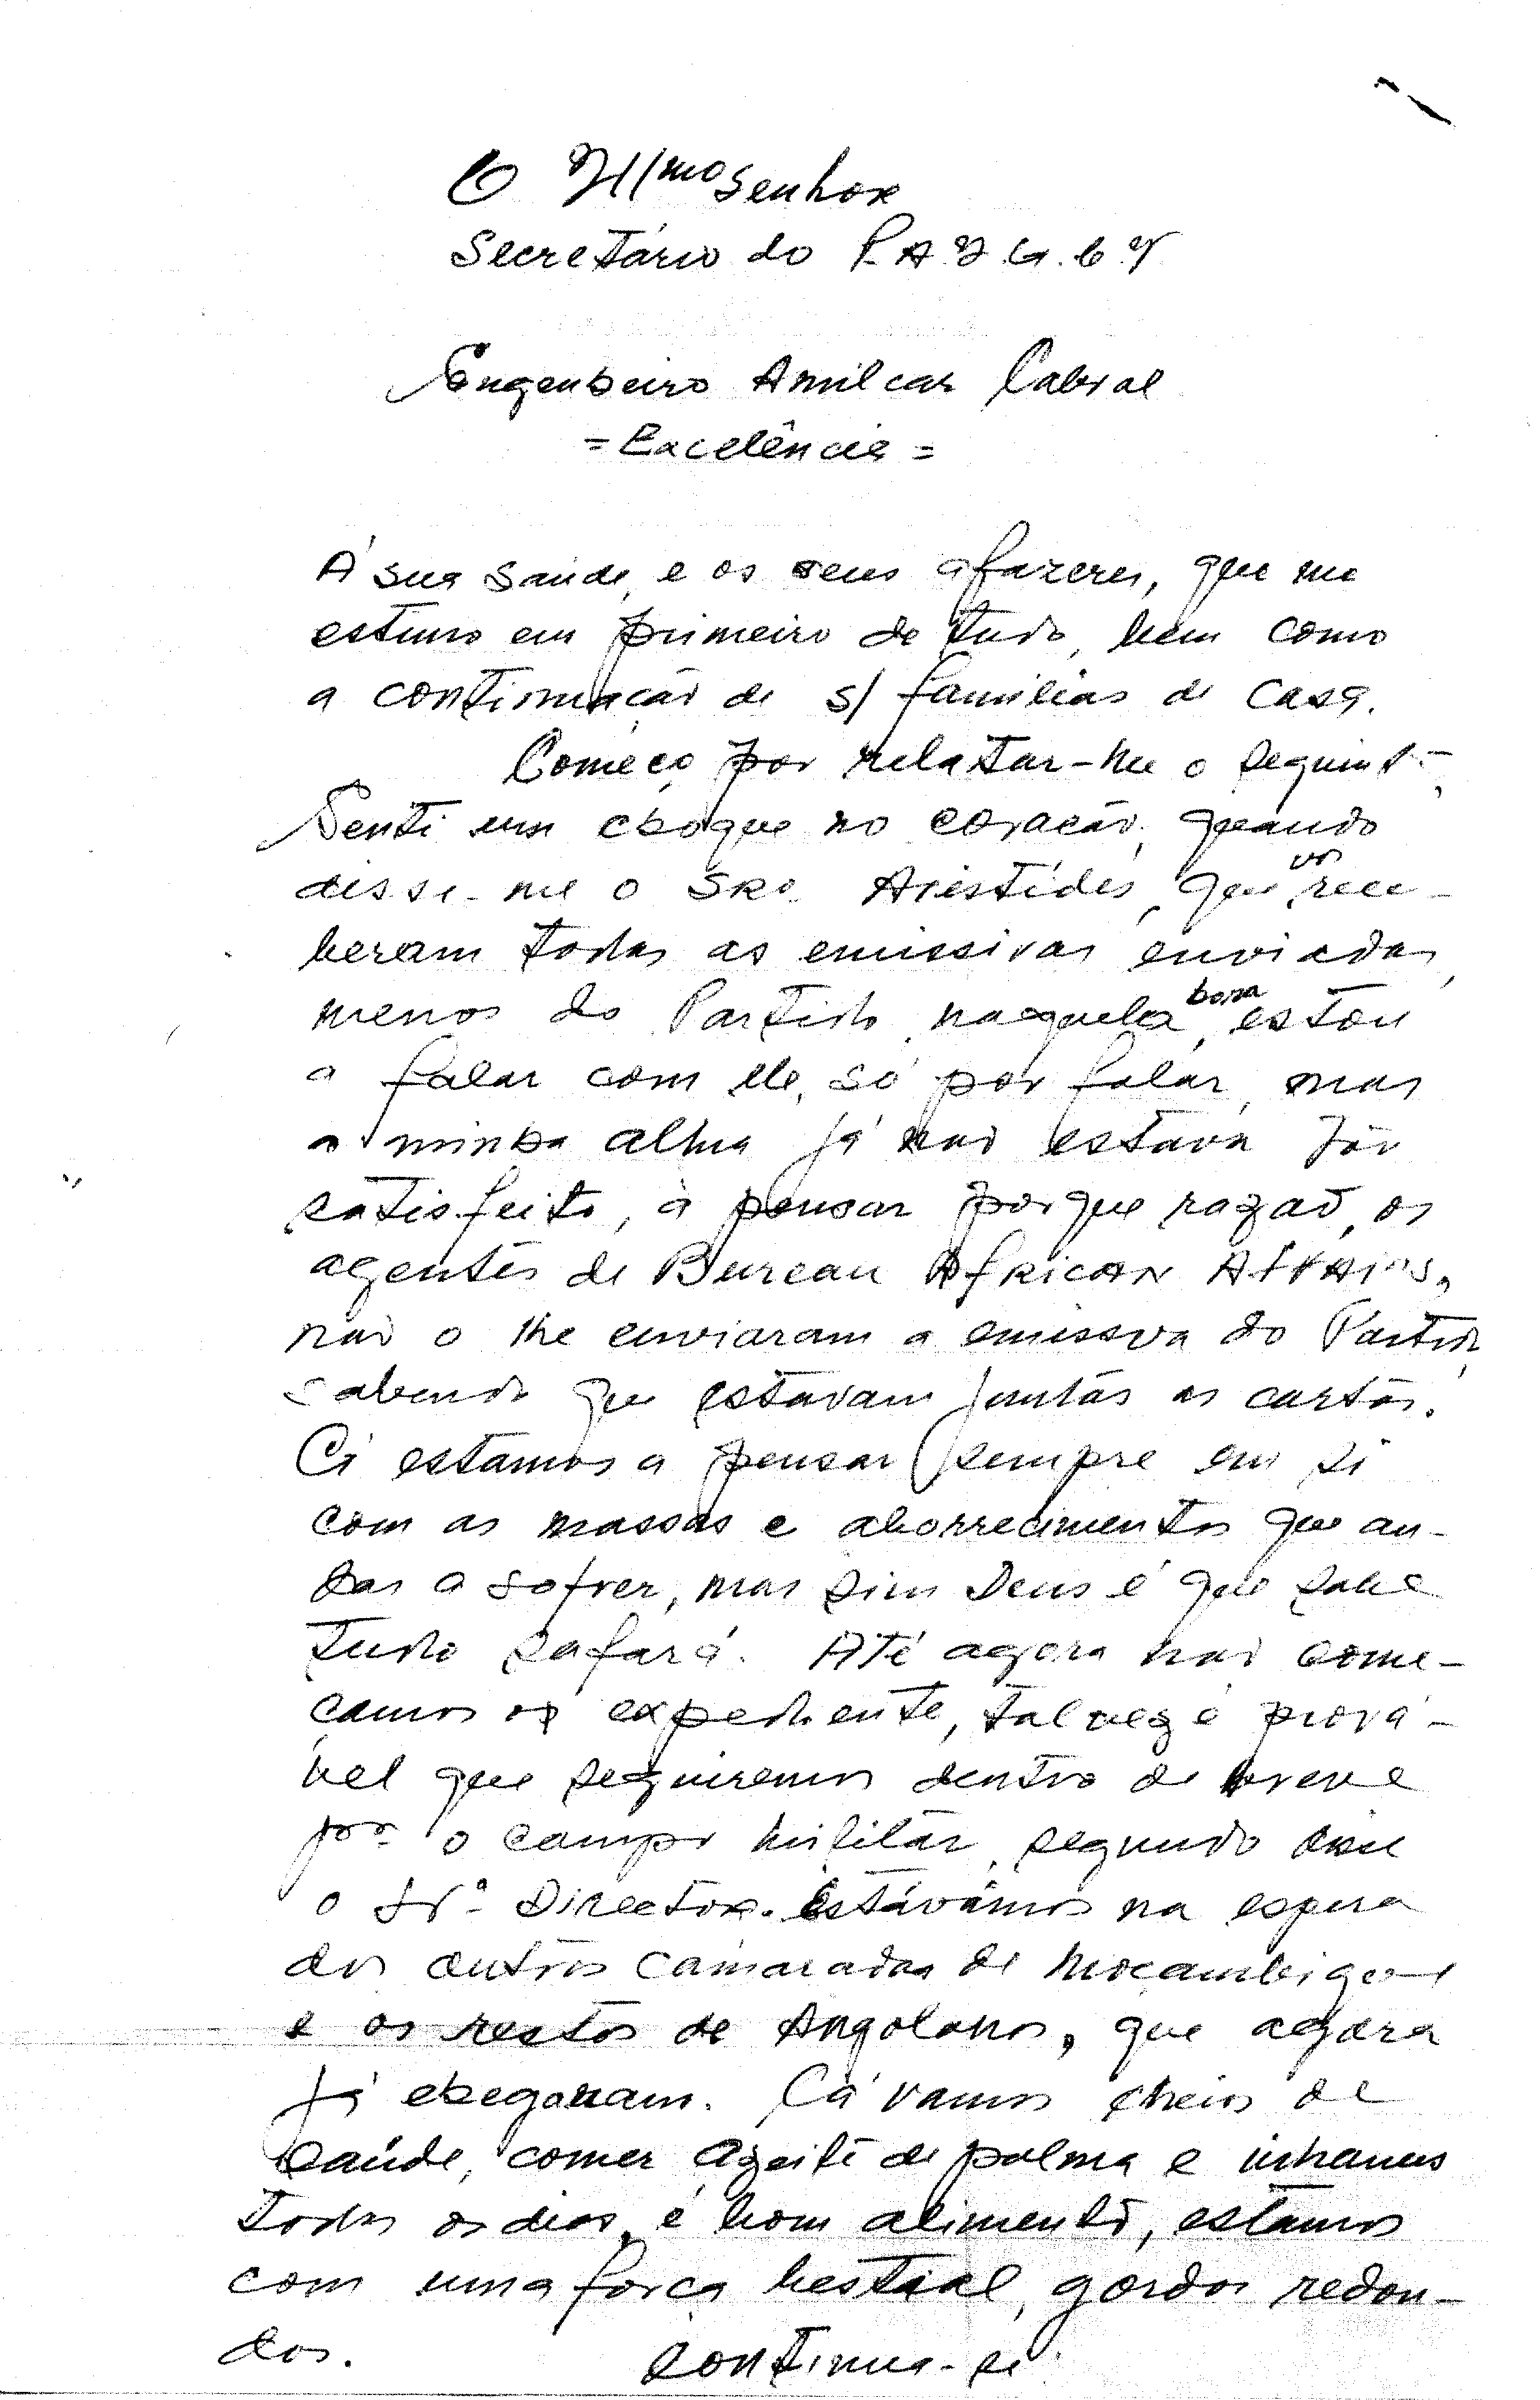 O Ilmo Senhor
Secretário do P.A.I.G.C.
Engenheiro Amilcar Cabral
= Excelência =
À sua saúde, e os seus afazeres, que me
estimo em primeiro de tudo, bem como
a continuação de s/ familias de casa.
Começo por relatar-lhe o seguinte;
Senti um choque no coração, quando
disse-me o Sro. Aristides, que vos rece-
beram todas as emissivas enviadas,
menos do Partido, naquela hora, estou
a falar com ele, só por falar, mas
a minha alma já não estava tão
satisfeito, à pensar porque razão, os
agentes de Bureau African Affairs,
não o lhe enviaram a emissva do Partido,
sabendo que estavam juntas as cartas.
Cá estamos a pensar sempre em si
com as massas e aborrecimentos que an-
das a sofrer, mas sim Deus é que sabe
tudo safará. Até agora não come-
çamos os expediente, talvez é prová-
vel que seguiremos dentro de breve
pra o campo militar, segundo disse
o Sr. Director. Estávamos na espera
dos outros camaradas de Moçambique
e os restos de Angolanos, que agora
já chegaram. Cá vamos cheios de
saúde, comer azeite de palma e inhames
todos os dias, é bom alimento, estamos
com uma força bestial, gordos redon-
dos. Continua-se